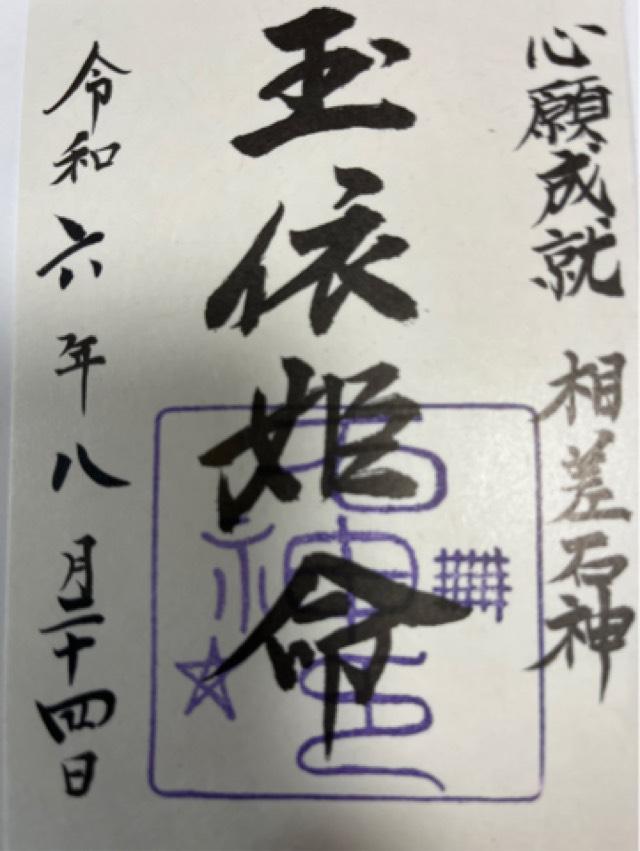 心願成就 相差石神
玉依姫命
令和六年八月二十四日
石神